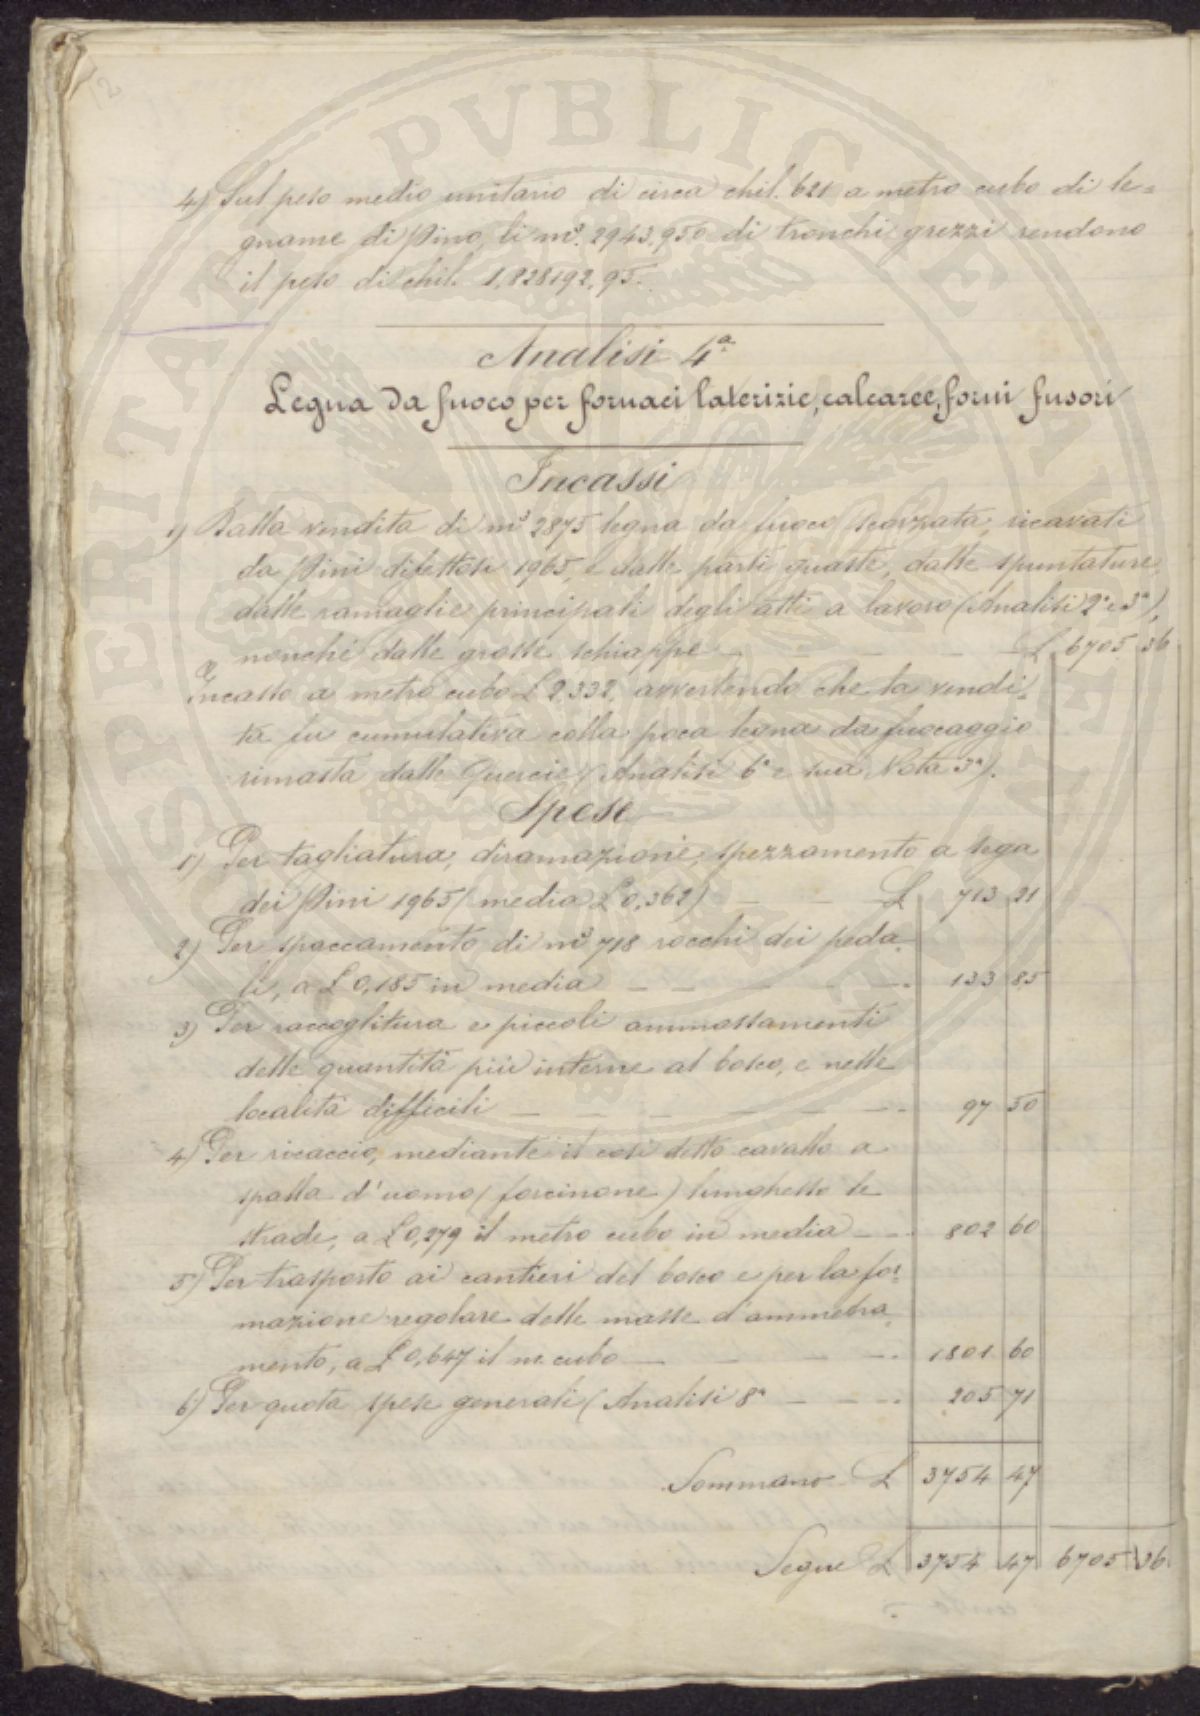 12
4) Sul peso medio unitario di circa chil. 621 a metro cubo di le=
gname di Pino, li m³. 2943,950 di tronchi grezzi rendono
il peso di chil. 1,828192,95.
Analisi 4ª
Legna da fuoco per fornaci laterizie, calcaree, forni fusori
Incassi
1) Dalla vendita di m³ 2875 legna da fuoco scorzata, ricavati
da Pini difettosi 1965, e dalle parti guaste, dalle spuntature,
dalle ramaglie principali degli atti a lavoro (Analisi 2ª e 3ª),
nonché dalle grosse schiappe — — — — — L 6705 36
Incasso a metro cubo L 2,332, avvertendo che la vendi=
ta fu cumulativa colla poca legna da fuocaggio
rimasta dalle Quercie (Analisi 6ª e sua Nota 3ª).
Spese
1) Per tagliatura, diramazione, spezzamento a sega
dei Pini 1965 (media L 0,362) — — L 713 21
2) Per spaccamento di m³ 718 rocchi dei peda=
li, a L 0,185 in media — — — — — 133 85
3) Per raccoglitura e piccoli ammassamenti
delle quantità più interne al bosco, e nelle
località difficili — — — — — — 97 50
4) Per ricaccio, mediante il così detto cavallo a
spalla d'uomo (forcinone) lunghesso le
strade, a L 0,279 il metro cubo in media — — 802 60
5) Per trasporto ai cantieri del bosco e per la for=
mazione regolare delle masse d'ammetra=
mento, a L 0,647 il m. cubo — — — — 1801 60
6) Per quota spese generali (Analisi 8ª — — — 205 71
Sommano L 3754 47
Segue L 3754 47 6705 36
PVBLICAE VTILITATI PROSPERITATI